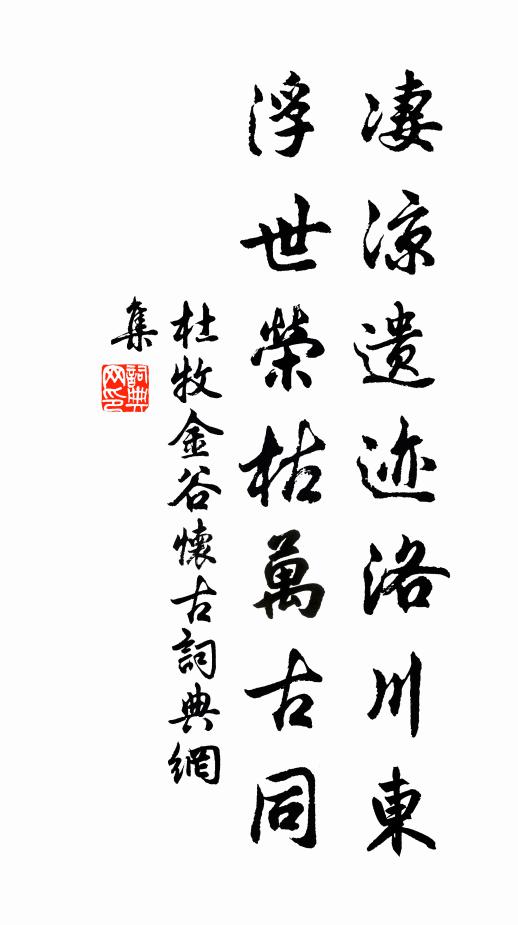 凄涼遺迹洛川東
浮世榮枯萬古同
杜牧金谷懷古詞典網
集
詞典
网印